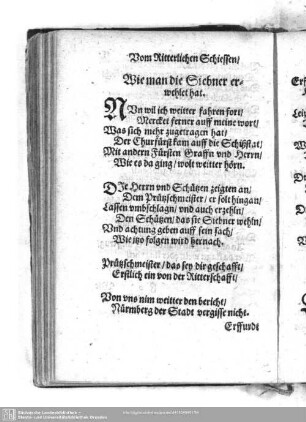 Vom Ritterlichen Schiessen/
Wie man die Siebner er-
wehlet hat.
NVn wil ich weitter fahren fort/
Mercket ferner auff meine wort/
Was sich mehr zugetragen hat/
Der Churfürst kam auff die Schißstat/
Mit andern Fürsten Graffn vnd Herrn/
Wie es da ging/ wolt weitter hörn.
DIe Herrn vnd Schützen zeigten an/
Dem Prützschmeister/ er solt hingan/
Lassen vmbschlagn/ vnd auch erzehln/
Den Schützen/ das sie Siebner wehln/
Vnd achtung geben auff sein sach/
Wie itzo folgen wird hernach.
Prützschmeister/ das sey dir geschafft/
Erstlich ein von der Ritterschafft/
Von vns nim weitter den bericht/
Nürmberg der Stadt vergisse nicht.
Erffurdt